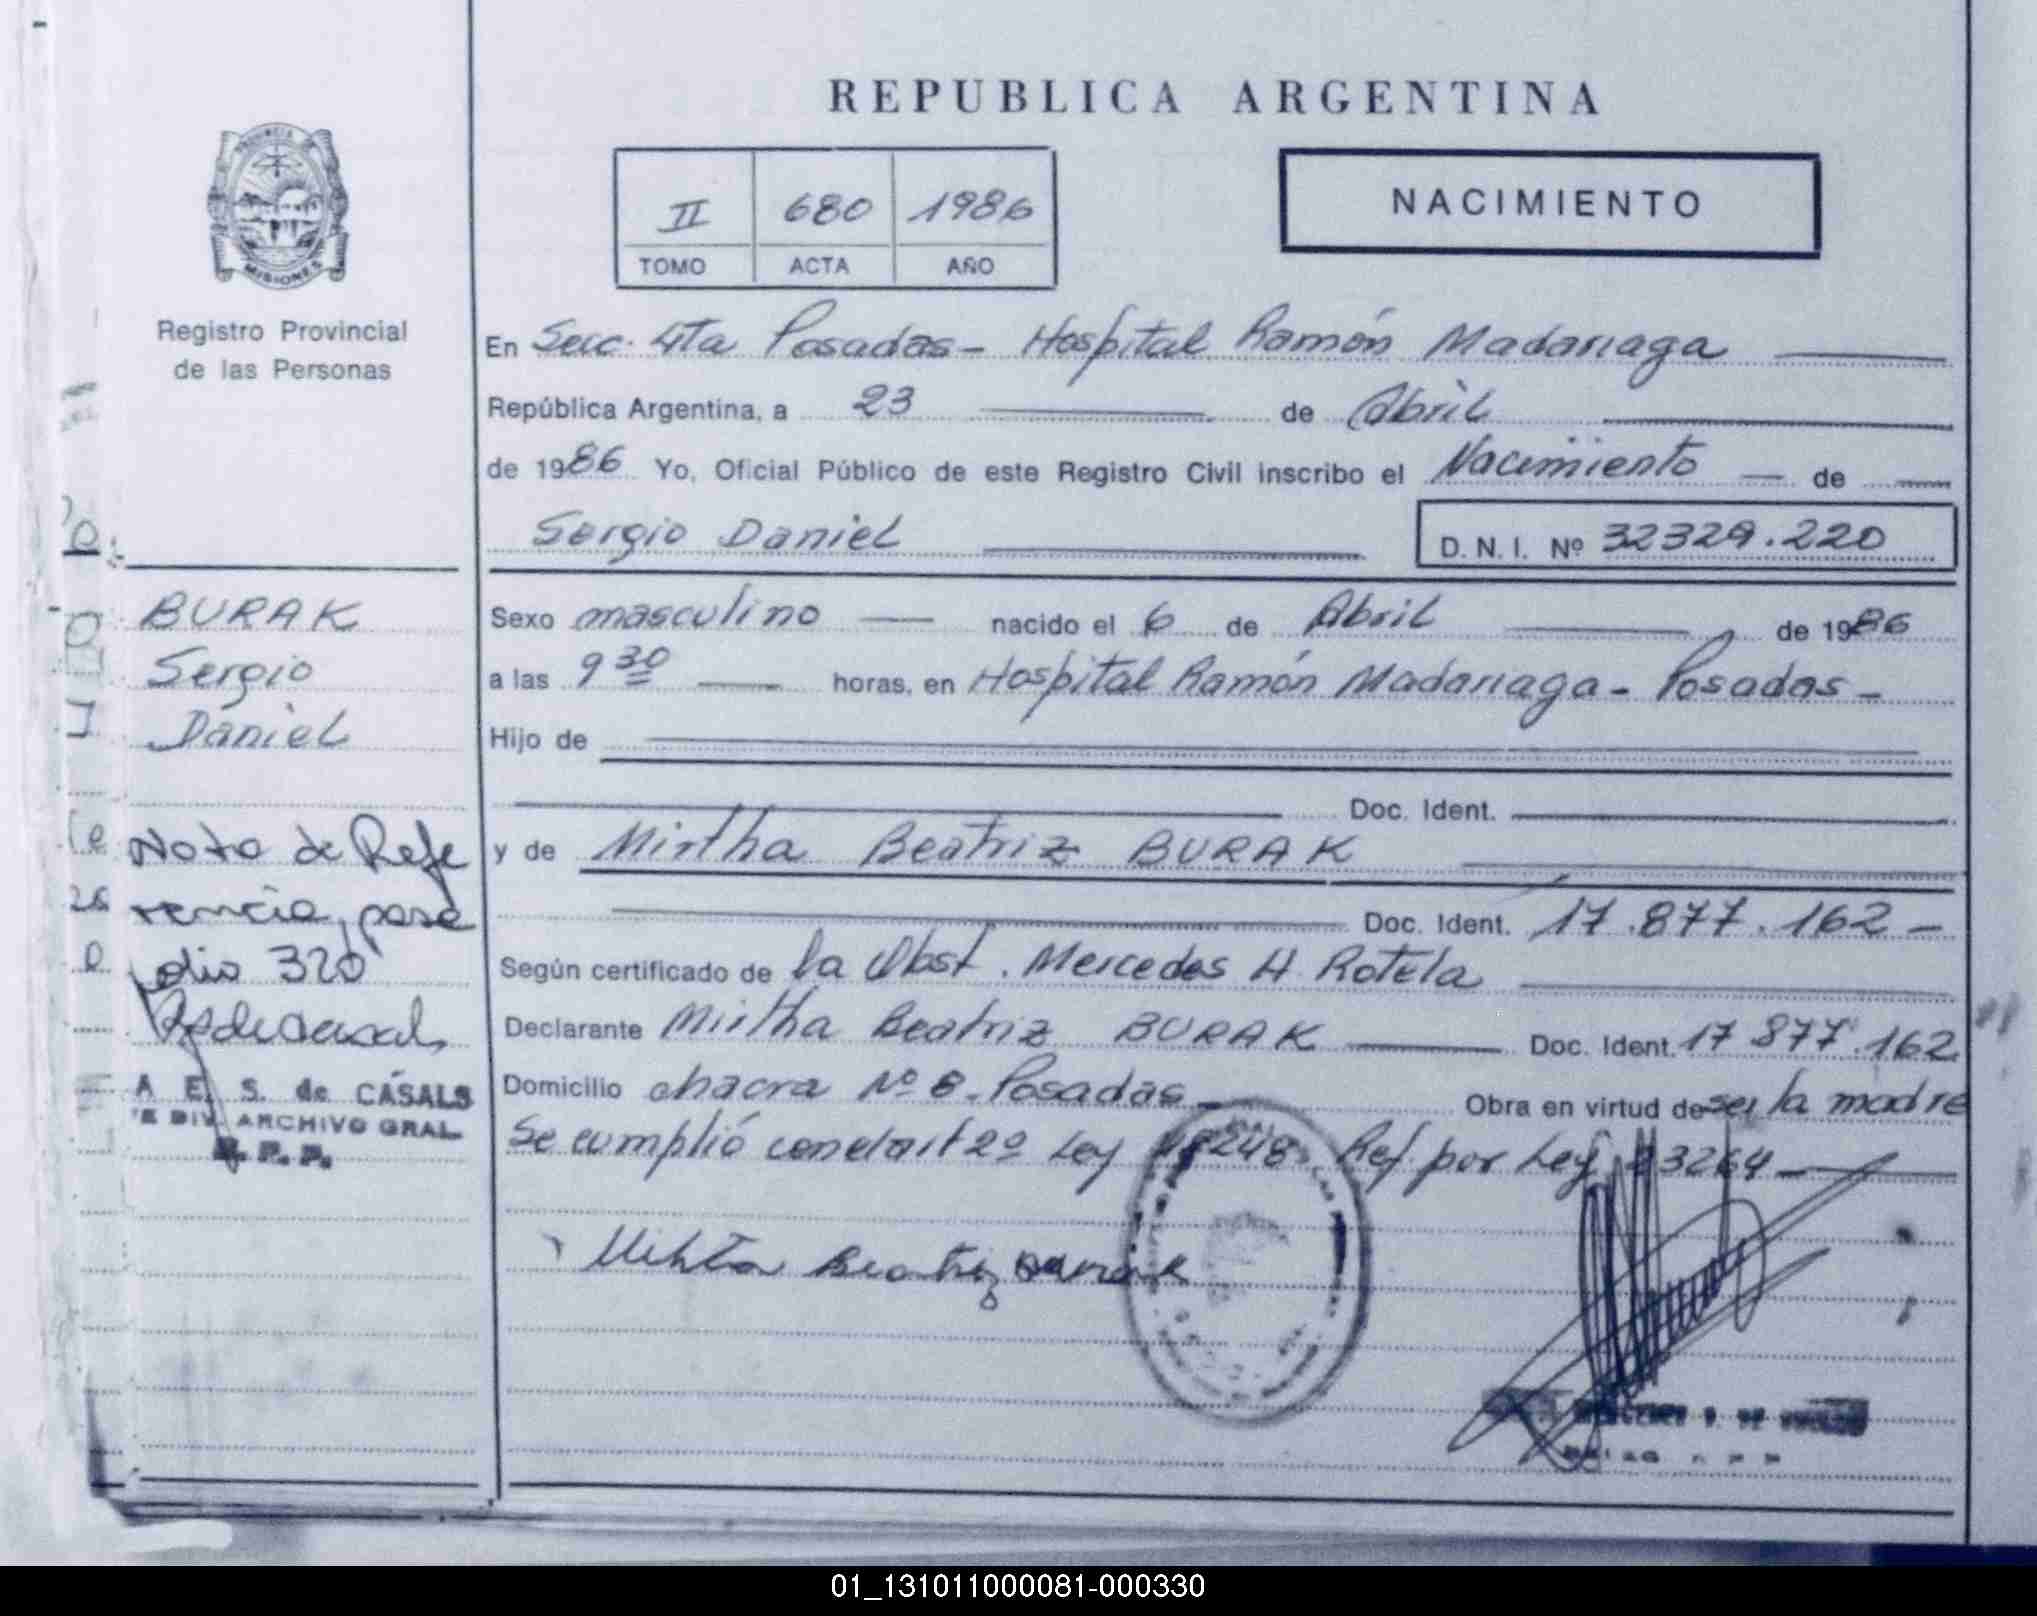 REPUBLICA ARGENTINA
II 680 1986
TOMO ACTA AÑO
NACIMIENTO
PROVINCIA DE
MISIONES
Registro Provincial
de las Personas
En Secc. 4ta Posadas - Hospital Ramón Madariaga
República Argentina, a 23 de Abril
de 1986 Yo, Oficial Público de este Registro Civil inscribo el Nacimiento de
Sergio Daniel
D. N. I. Nº 32329.220
BURAK
Sergio
Daniel
Sexo masculino nacido el 6 de Abril de 1986
a las 9 30 horas, en Hospital Ramón Madariaga - Posadas -
Hijo de
Doc. Ident.
y de Mirtha Beatriz BURAK
Doc. Ident. 17.877.162 -
Según certificado de la Obst. Mercedes H Rotela
Declarante Mirtha Beatriz BURAK Doc. Ident. 17 877.162
Domicilio chacra Nº 8 - Posadas - Obra en virtud de ser la madre
Se cumplió con el art 2º Ley 18248 Ref. por Ley 23264 -
Mihta Beatriz Burak
Nota de Refe
rencia, pasa
folio 320
A E. S. de CASALS
E DIV. ARCHIVO GRAL.
R. P. P.
01_131011000081-000330